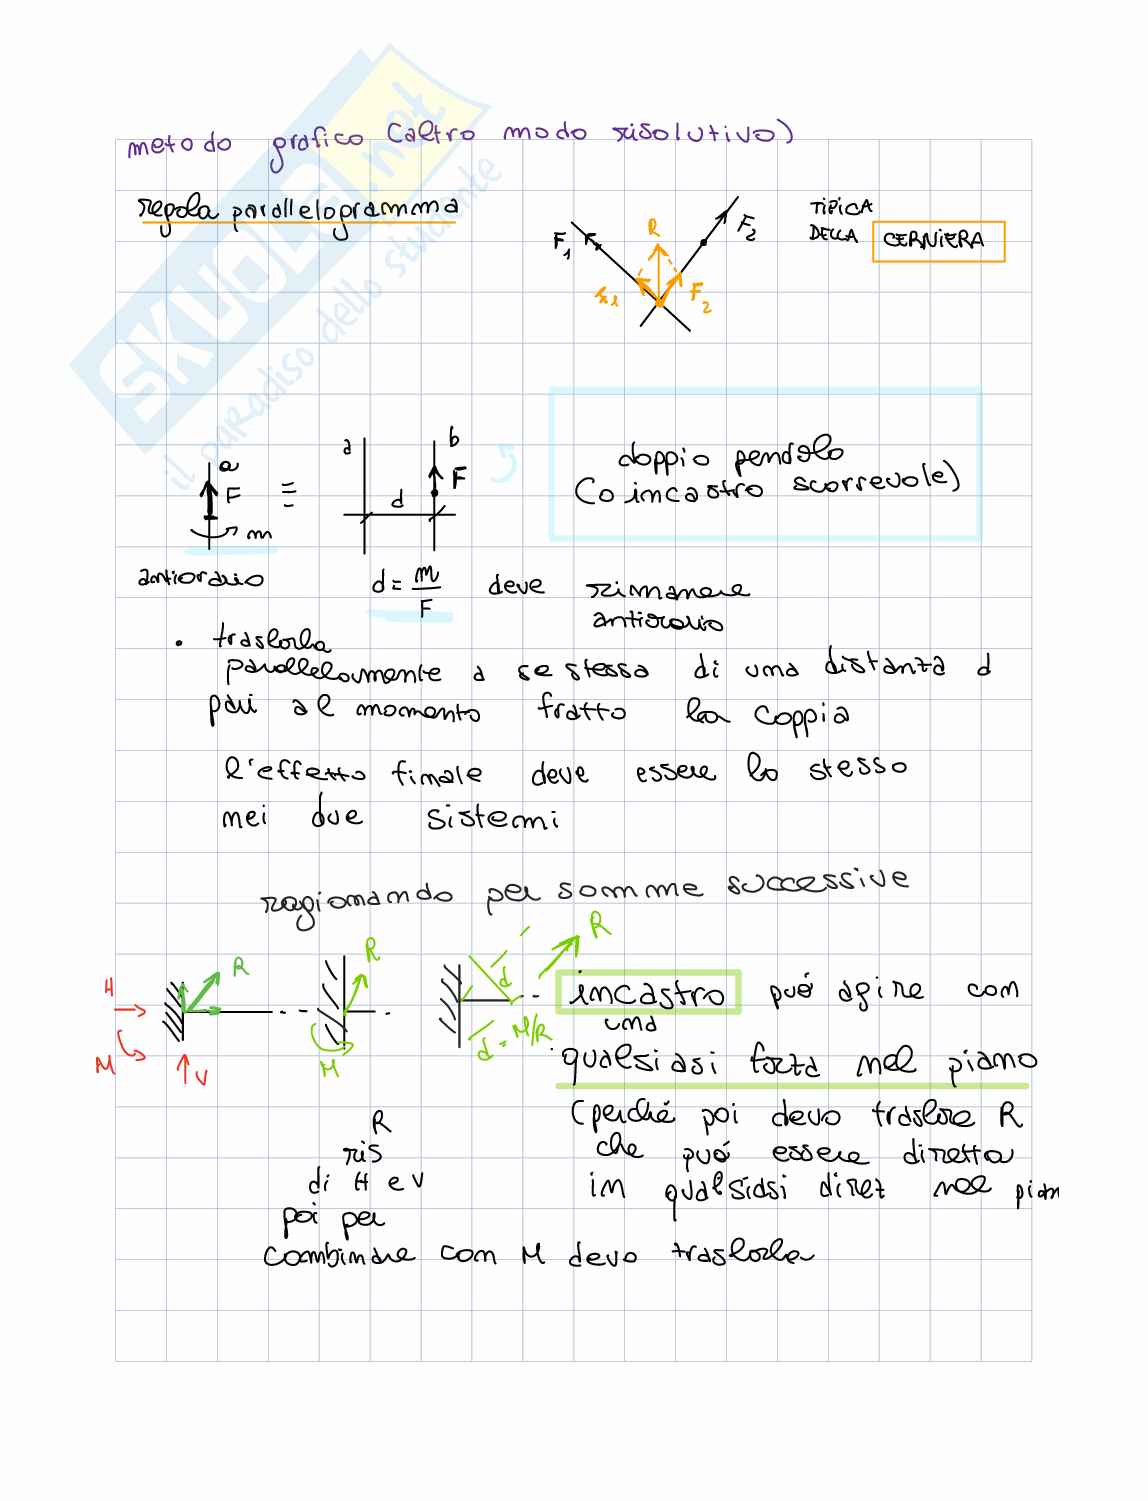 metodo grafico (altro modo risolutivo)
regola parallelogramma
F1
R
F2
TIPICA
DELLA CERNIERA
F2
a
F
=
m
a
b
F
d
doppio pendolo
(o incastro scorrevole)
antiorario
d = m/F deve rimanere
antiorario
• traslarla
parallelamente a se stessa di una distanza d
pari al momento fratto la coppia
l'effetto finale deve essere lo stesso
nei due sistemi
ragionando per somme successive
H
M
V
R
R
M
d
d = M/R
R
incastro può agire con
una
qualsiasi forza nel piano
(perché poi devo traslare R
che può essere diretta
in qualsiasi direz nel pian
R
ris
di H e V
poi per
combinare con M devo traslarla
SKUOLA.net
il paradiso dello studente